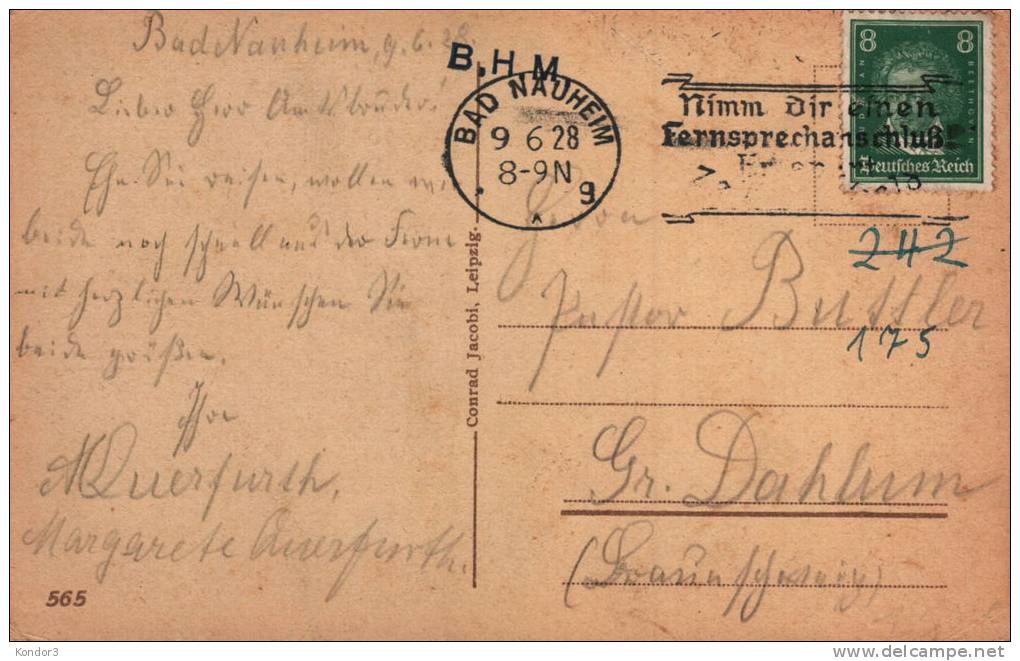 Bad Nauheim, 9.6.28
Lieber Herr Amtsbruder!
Ehe Sie reisen, wollen wir
beide noch schnell aus der Ferne
mit herzlichen Wünschen Sie
beide grüßen.
Ihre
A Querfurth,
Margarete Querfurth.
565
Conrad Jacobi, Leipzig.
B.H M
BAD NAUHEIM
9 6 28
8-9N
* g
Nimm Dir einen
Fernsprechanschluß
8 8
BEETHOVEN
Deutsches Reich
242
175
Herrn
Pastor Buttler
Gr. Dahlum
(Braunschweig)
Kondor3
delcampe.net